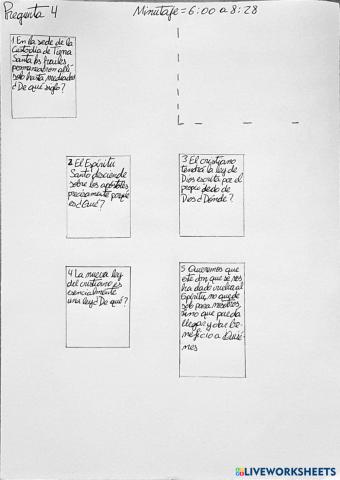 Pregunta 4
Minutaje = 6:00 a 8:28
1 En la sede de la
Custodia de Tierra
Santa los frailes,
permanecieron allí
solo hasta mediados
¿De qué siglo?
2 El Espíritu
Santo desciende
sobre los apóstoles
precisamente porque
es ¿Qué?
3 El cristiano
tendrá la ley de
Dios escrita por el
propio dedo de
Dios ¿Dónde?
4 La nueva ley
del cristiano es
esencialmente
una ley ¿De qué?
5 Queremos que
este don que se nos
ha dado vuelva al
Espíritu, no quede
solo para nosotros,
sino que pueda
llegar y dar be-
neficio a ¿Quié-
nes
LIVEWORKSHEETS